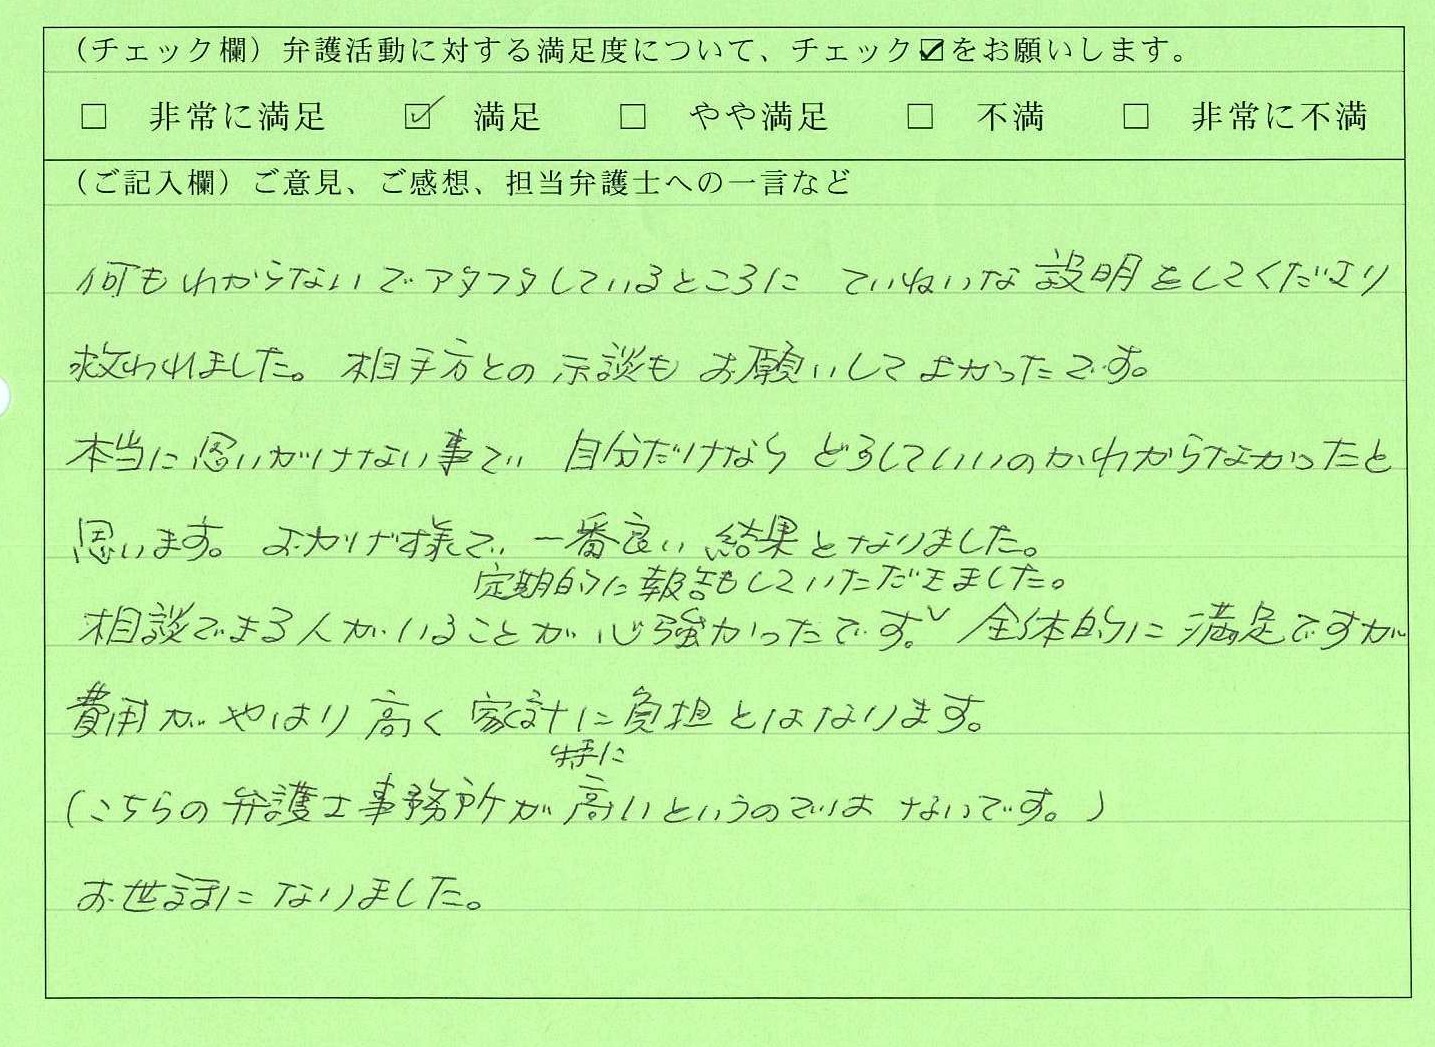 （チェック欄）弁護活動に対する満足度について、チェック☑をお願いします。
☐ 非常に満足 ☑ 満足 ☐ やや満足 ☐ 不満 ☐ 非常に不満
（ご記入欄）ご意見、ご感想、担当弁護士への一言など
何もわからないでアタフタしているところに ていねいな説明をしてくださり
救われました。相手方との示談も お願いしてよかったです。
本当に思いがけない事で 自分だけなら どうしていいのかわからなかったと
思います。おかげ様で、一番良い結果となりました。
定期的に報告もしていただきました。
相談できる人がいることが心強かったです。✓ 全体的に満足ですが
費用がやはり高く 家計に負担とはなります。
特に
（こちらの弁護士事務所が高いというのでは ないです。）
お世話になりました。